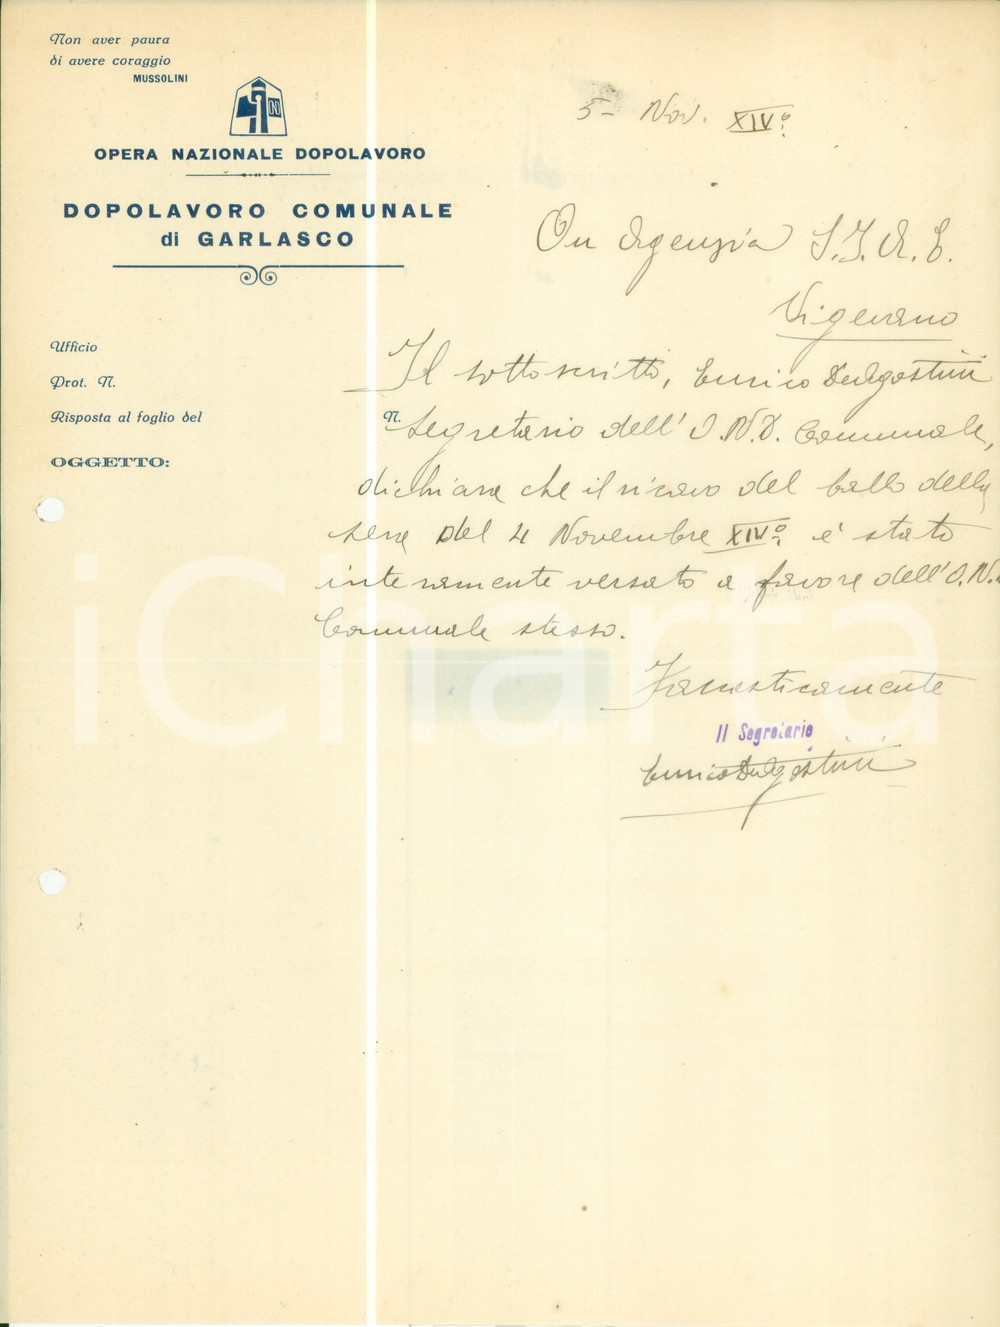 Non aver paura
di avere coraggio
MUSSOLINI
OPERA NAZIONALE DOPOLAVORO
DOPOLAVORO COMUNALE
di GARLASCO
Ufficio
Prot. N.
Risposta al foglio del N.
OGGETTO:
5- Nov. XIVº:
On Agenzia S.I.A.E.
Vigevano
Il sottoscritto, Enrico DeAgostini
Segretario dell'O.N.D. Comunale,
dichiara che il ricavo del ballo della
sera del 4 Novembre XIVº: è stato
interamente versato a favore dell'O.N.
Comunale stesso.
Fascisticamente
Il Segretario
Enrico DeAgostini
iCharta